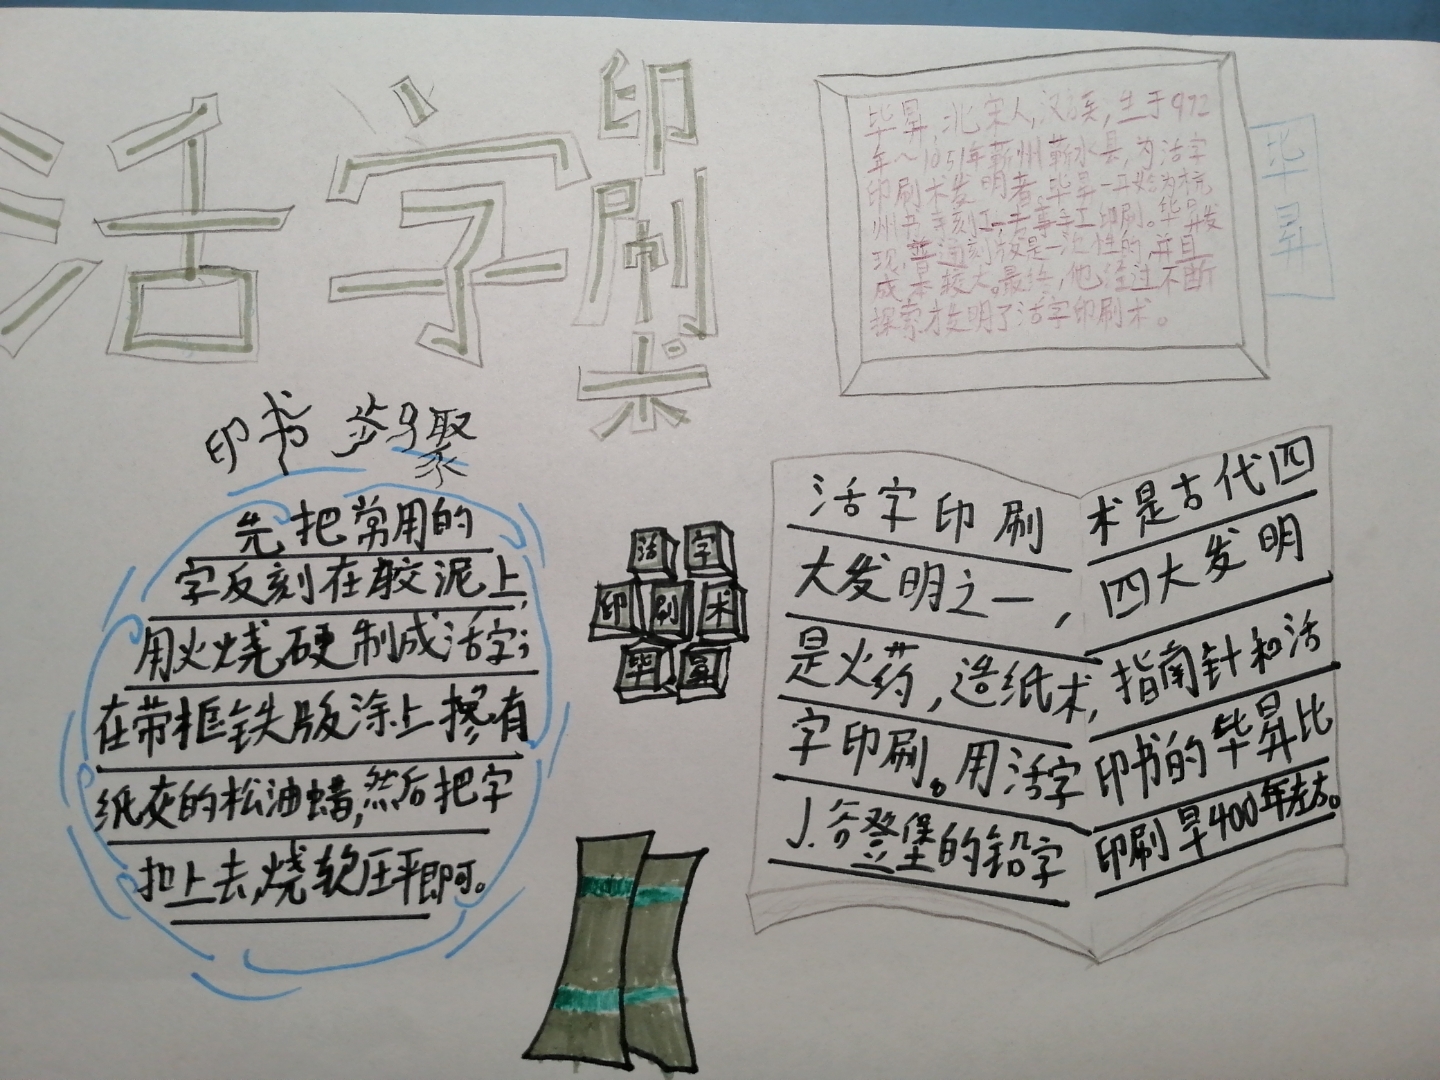 活字印刷术
毕昇，北宋人，汉族，生于972
年～1051年蕲州蕲水县，为活字
印刷术发明者。毕昇一开始为杭
州书刻工，去事手工印刷。毕昇发
现，普通刻版是一次性的，并且
成本较大。最终，他经过不断
探索，才发明了活字印刷术。
毕昇
印书步骤
先把常用的
字反刻在胶泥上，
用火烧硬制成活字；
在带框铁版涂上掺有
纸灰的松油蜡，然后把字
扣上去，烧软压平即可。
活字
印刷术
毕
活字印刷术是古代四
大发明之一，四大发明
是火药，造纸术，指南针和活
字印刷。用活字印书的毕昇比
J.谷登堡的铅字印刷早400年左右。